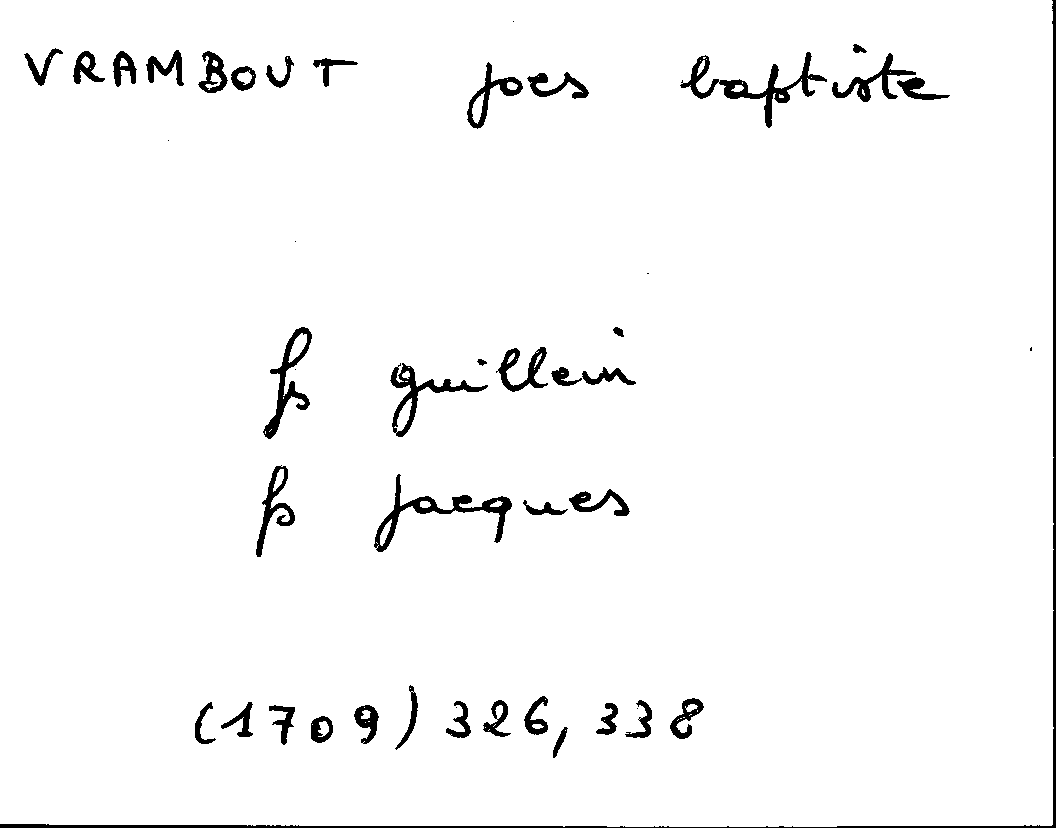 VRAMBOUT joes baptiste
fs guillem
fs jacques
(1709) 326, 338